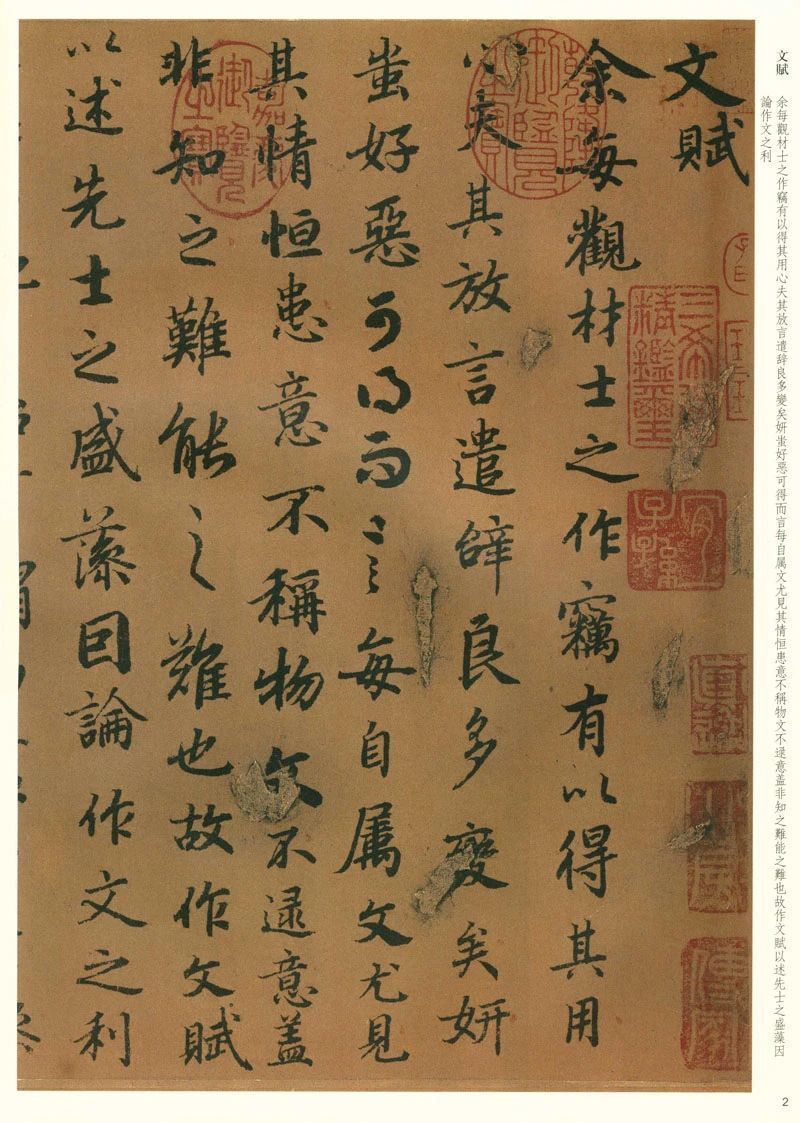 文賦
余每觀材士之作竊有以得其用心夫其放言遣辞良多變矣妍蚩好惡可得而言每自属文尤見其情恒患意不稱物文不逮意盖非知之難能之難也故作文賦以述先士之盛藻因
論作文之利
文賦
余每觀材士之作竊有以得其用
心夫其放言遣辞良多變矣妍
蚩好惡可得而言每自属文尤見
其情恒患意不稱物文不逮意盖
非知之難能之難也故作文賦
以述先士之盛藻因論作文之利
三希堂精鑑璽
宜子孫
乾隆御覽之寶
嘉慶御覽之寶
2